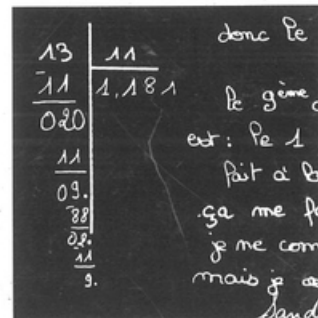 13 11
-11 1,181
020
11
09.
-88
02.
-11
9.
donc le
le 9ème
est : le 1
fait à
ça me
je ne
mais je